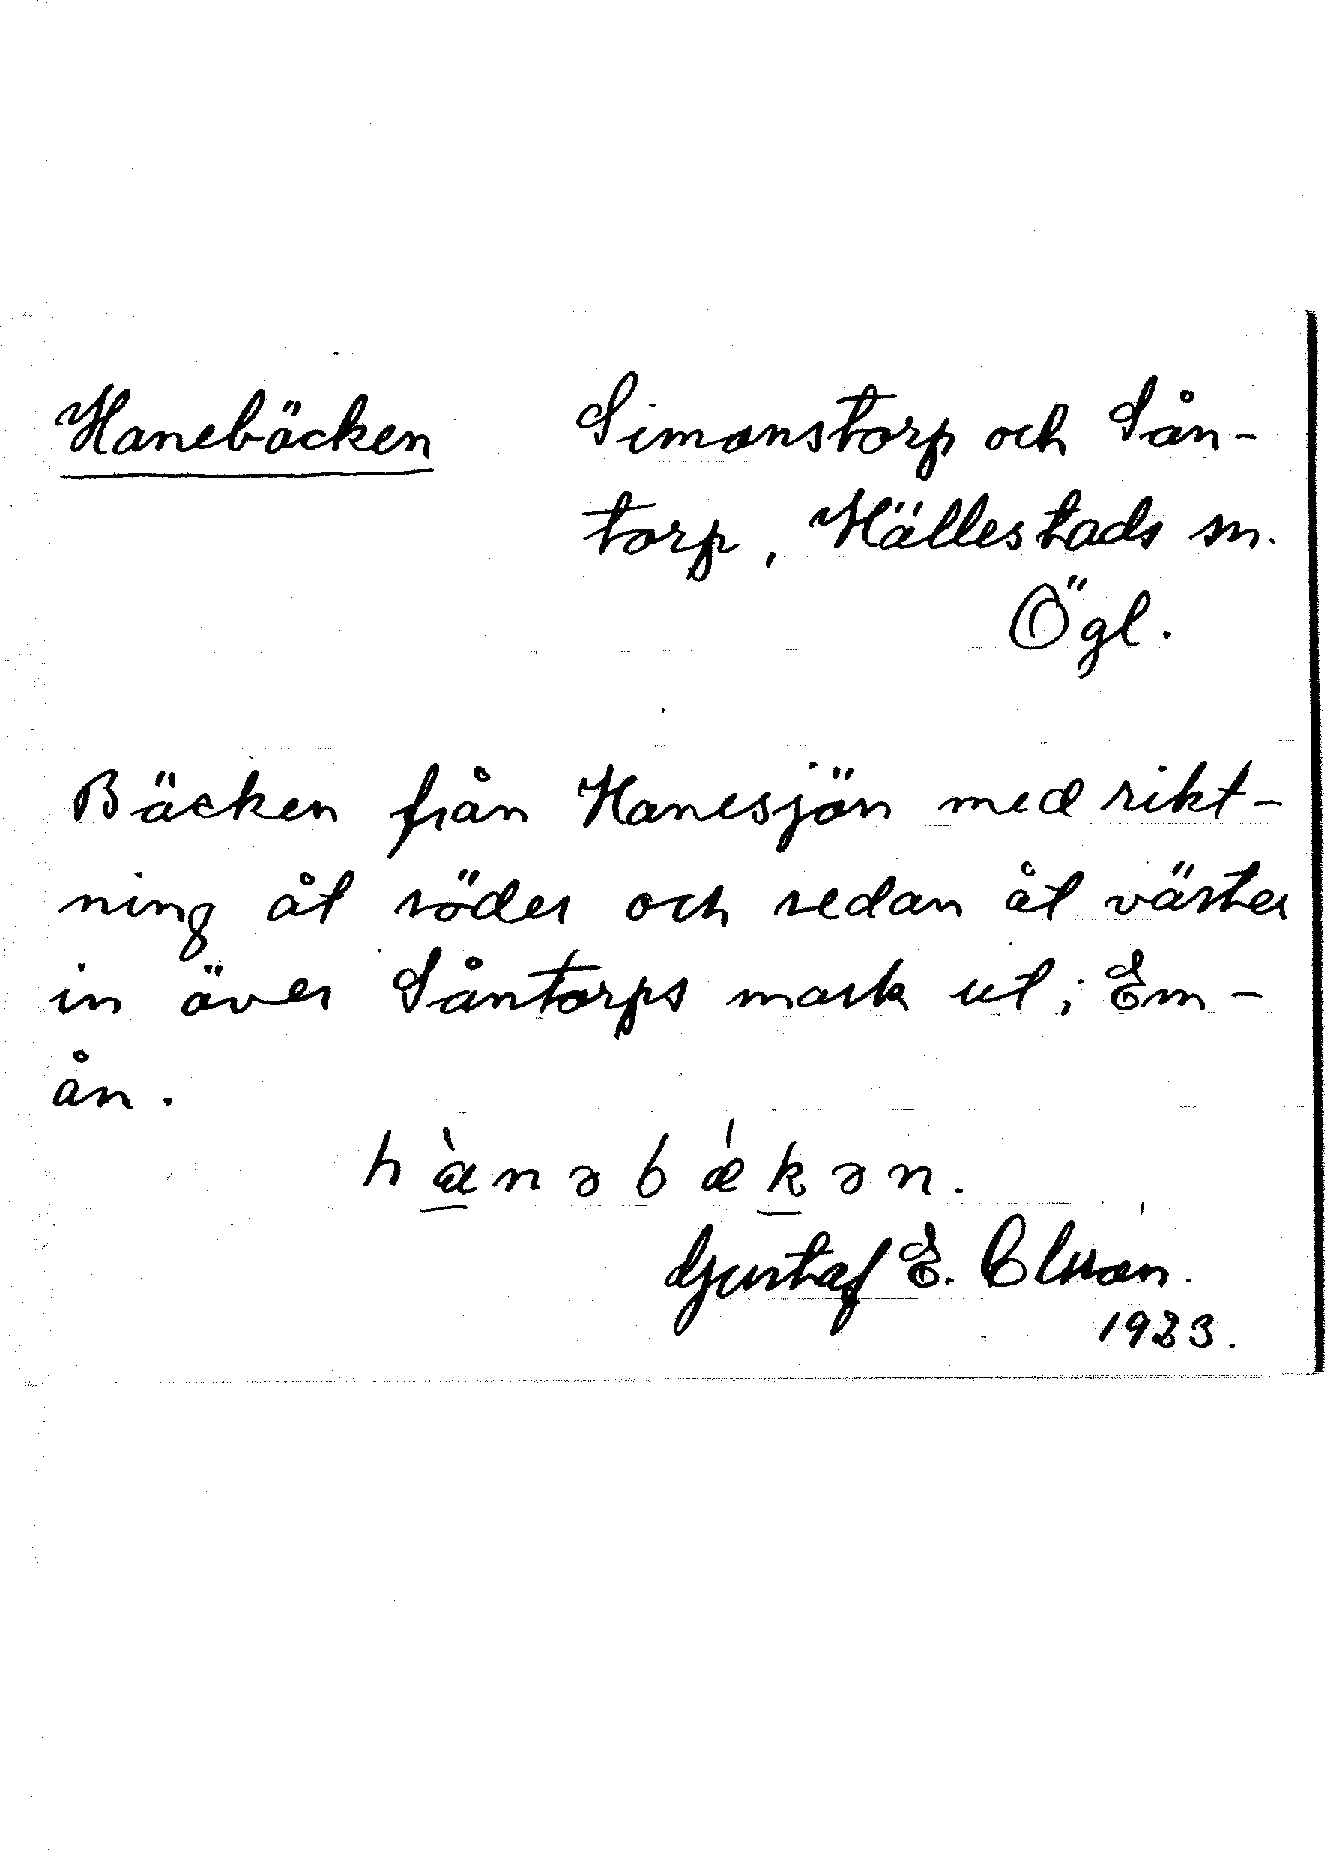 Hanebäcken Simonstorp och Sån-
torp, Hällestads sn.
Ögl.
Bäcken från Hanesjön med rikt-
ning åt söder och sedan åt väster
in över Såntorps mark ut i Em-
ån.
hànəbǽkən.
Gustaf E. Olsson.
1933.